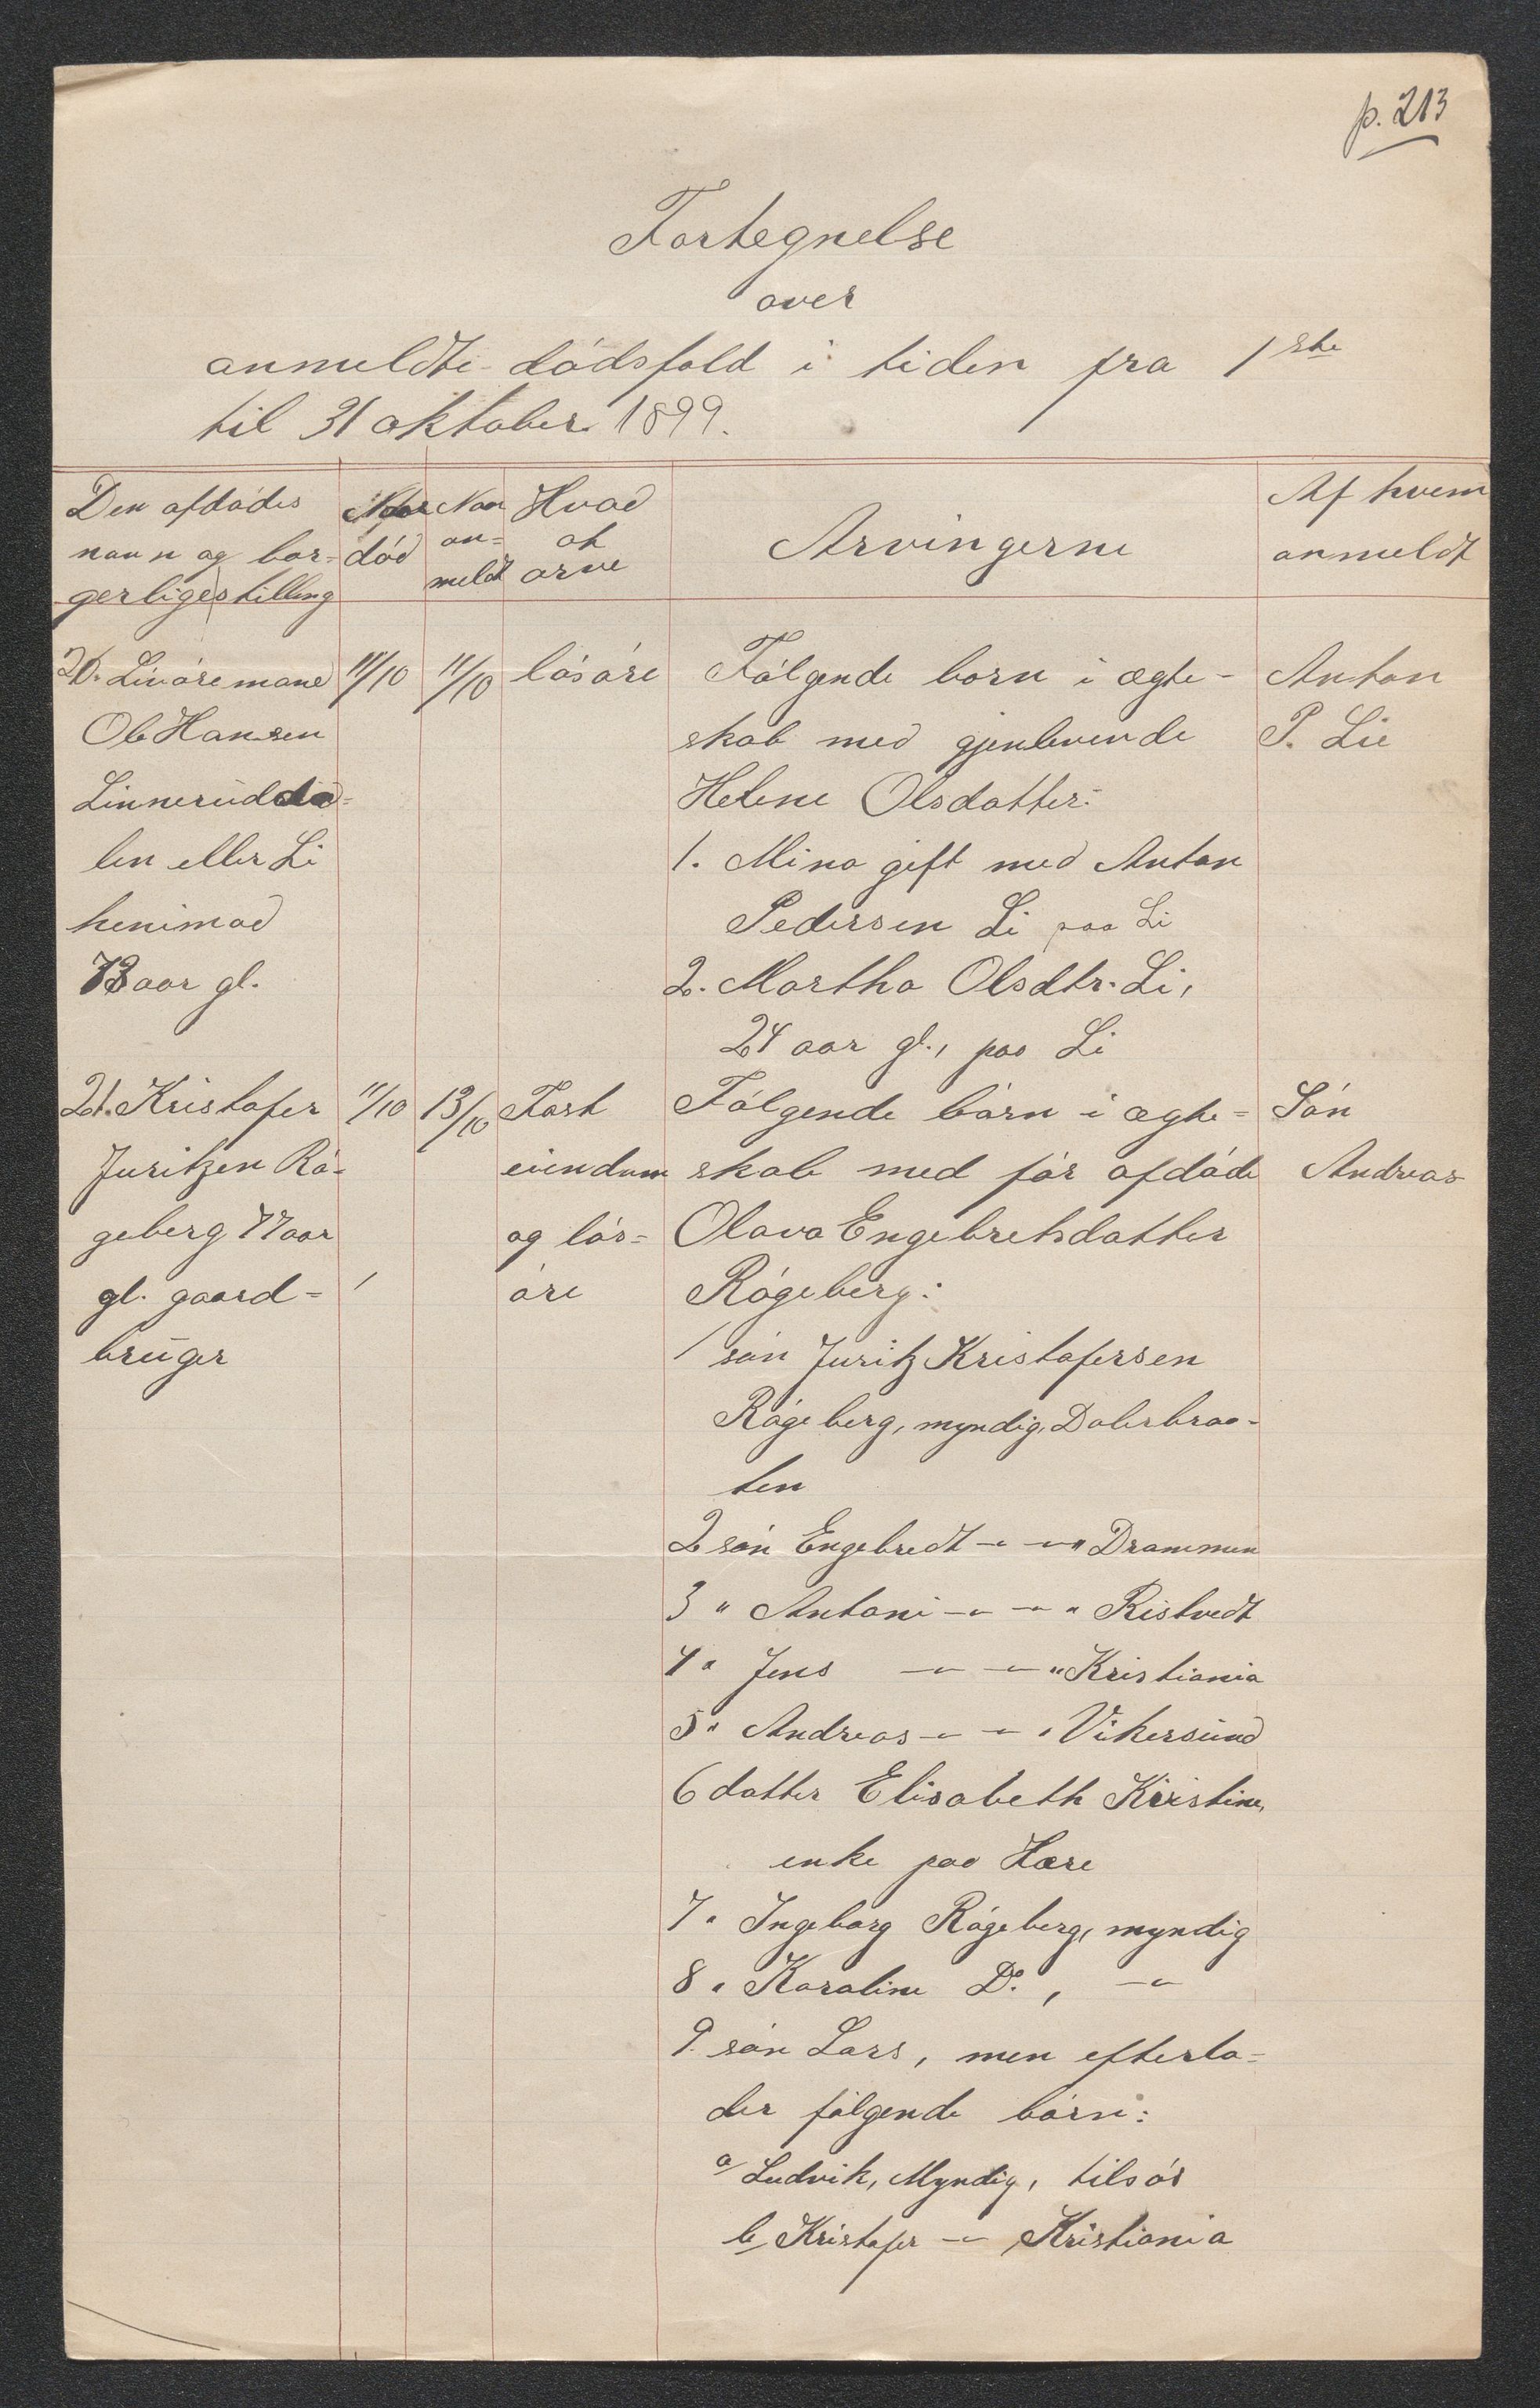 p. 213
Fortegnelse
over
anmeldte dödsfald i tiden fra 1ste
til 31 oktober 1899.
Den afdödes
navn og bor-
gerlige stilling
Naar
död
Naar
an-
meldt
Hvad
at
arve
Arvingerne
Af hvem
anmeldt
20. Livöremand
Ole Hansen
Linnerud
len eller Li
henimod
73 aar gl.
11/10
11/10
lösöre
Fölgende born i ægte-
skab med gjenlevende
Helene Olsdatter:
1. Mina gift med Anton
Pedersen Li paa Li
2. Martha Olsdtr. Li,
24 aar gl., paa Li
Anton
P. Lie
21. Kristofer
Juritzen Rö-
geberg 77 aar
gl. gaard-
bruger
11/10
13/10
Fast
eiendom
og lös-
öre
Fölgende börn i ægte-
skab med för afdöde
Olava Engebretsdatter
Rögeberg:
1 sön Juritz Kristofersen
Rögeberg, myndig, Dalerbraa-
ten
2 sön Engebredt -"- -"- " Drammen
3 " Antoni -"- -"- " Ristvedt
4 " Jens -"- -"- " Kristiania
5 " Andreas -"- -"- " Vikersund
6 datter Elisabeth Kristine,
enke paa Hære
7 " Ingeborg Rögeberg, myndig
8 " Karoline Do., -"-
9. sön Lars, men efterla-
der fölgende börn:
a/ Ludvik, Myndig, tilsös
b/ Kristofer -"- Kristiania
Sön
Andreas